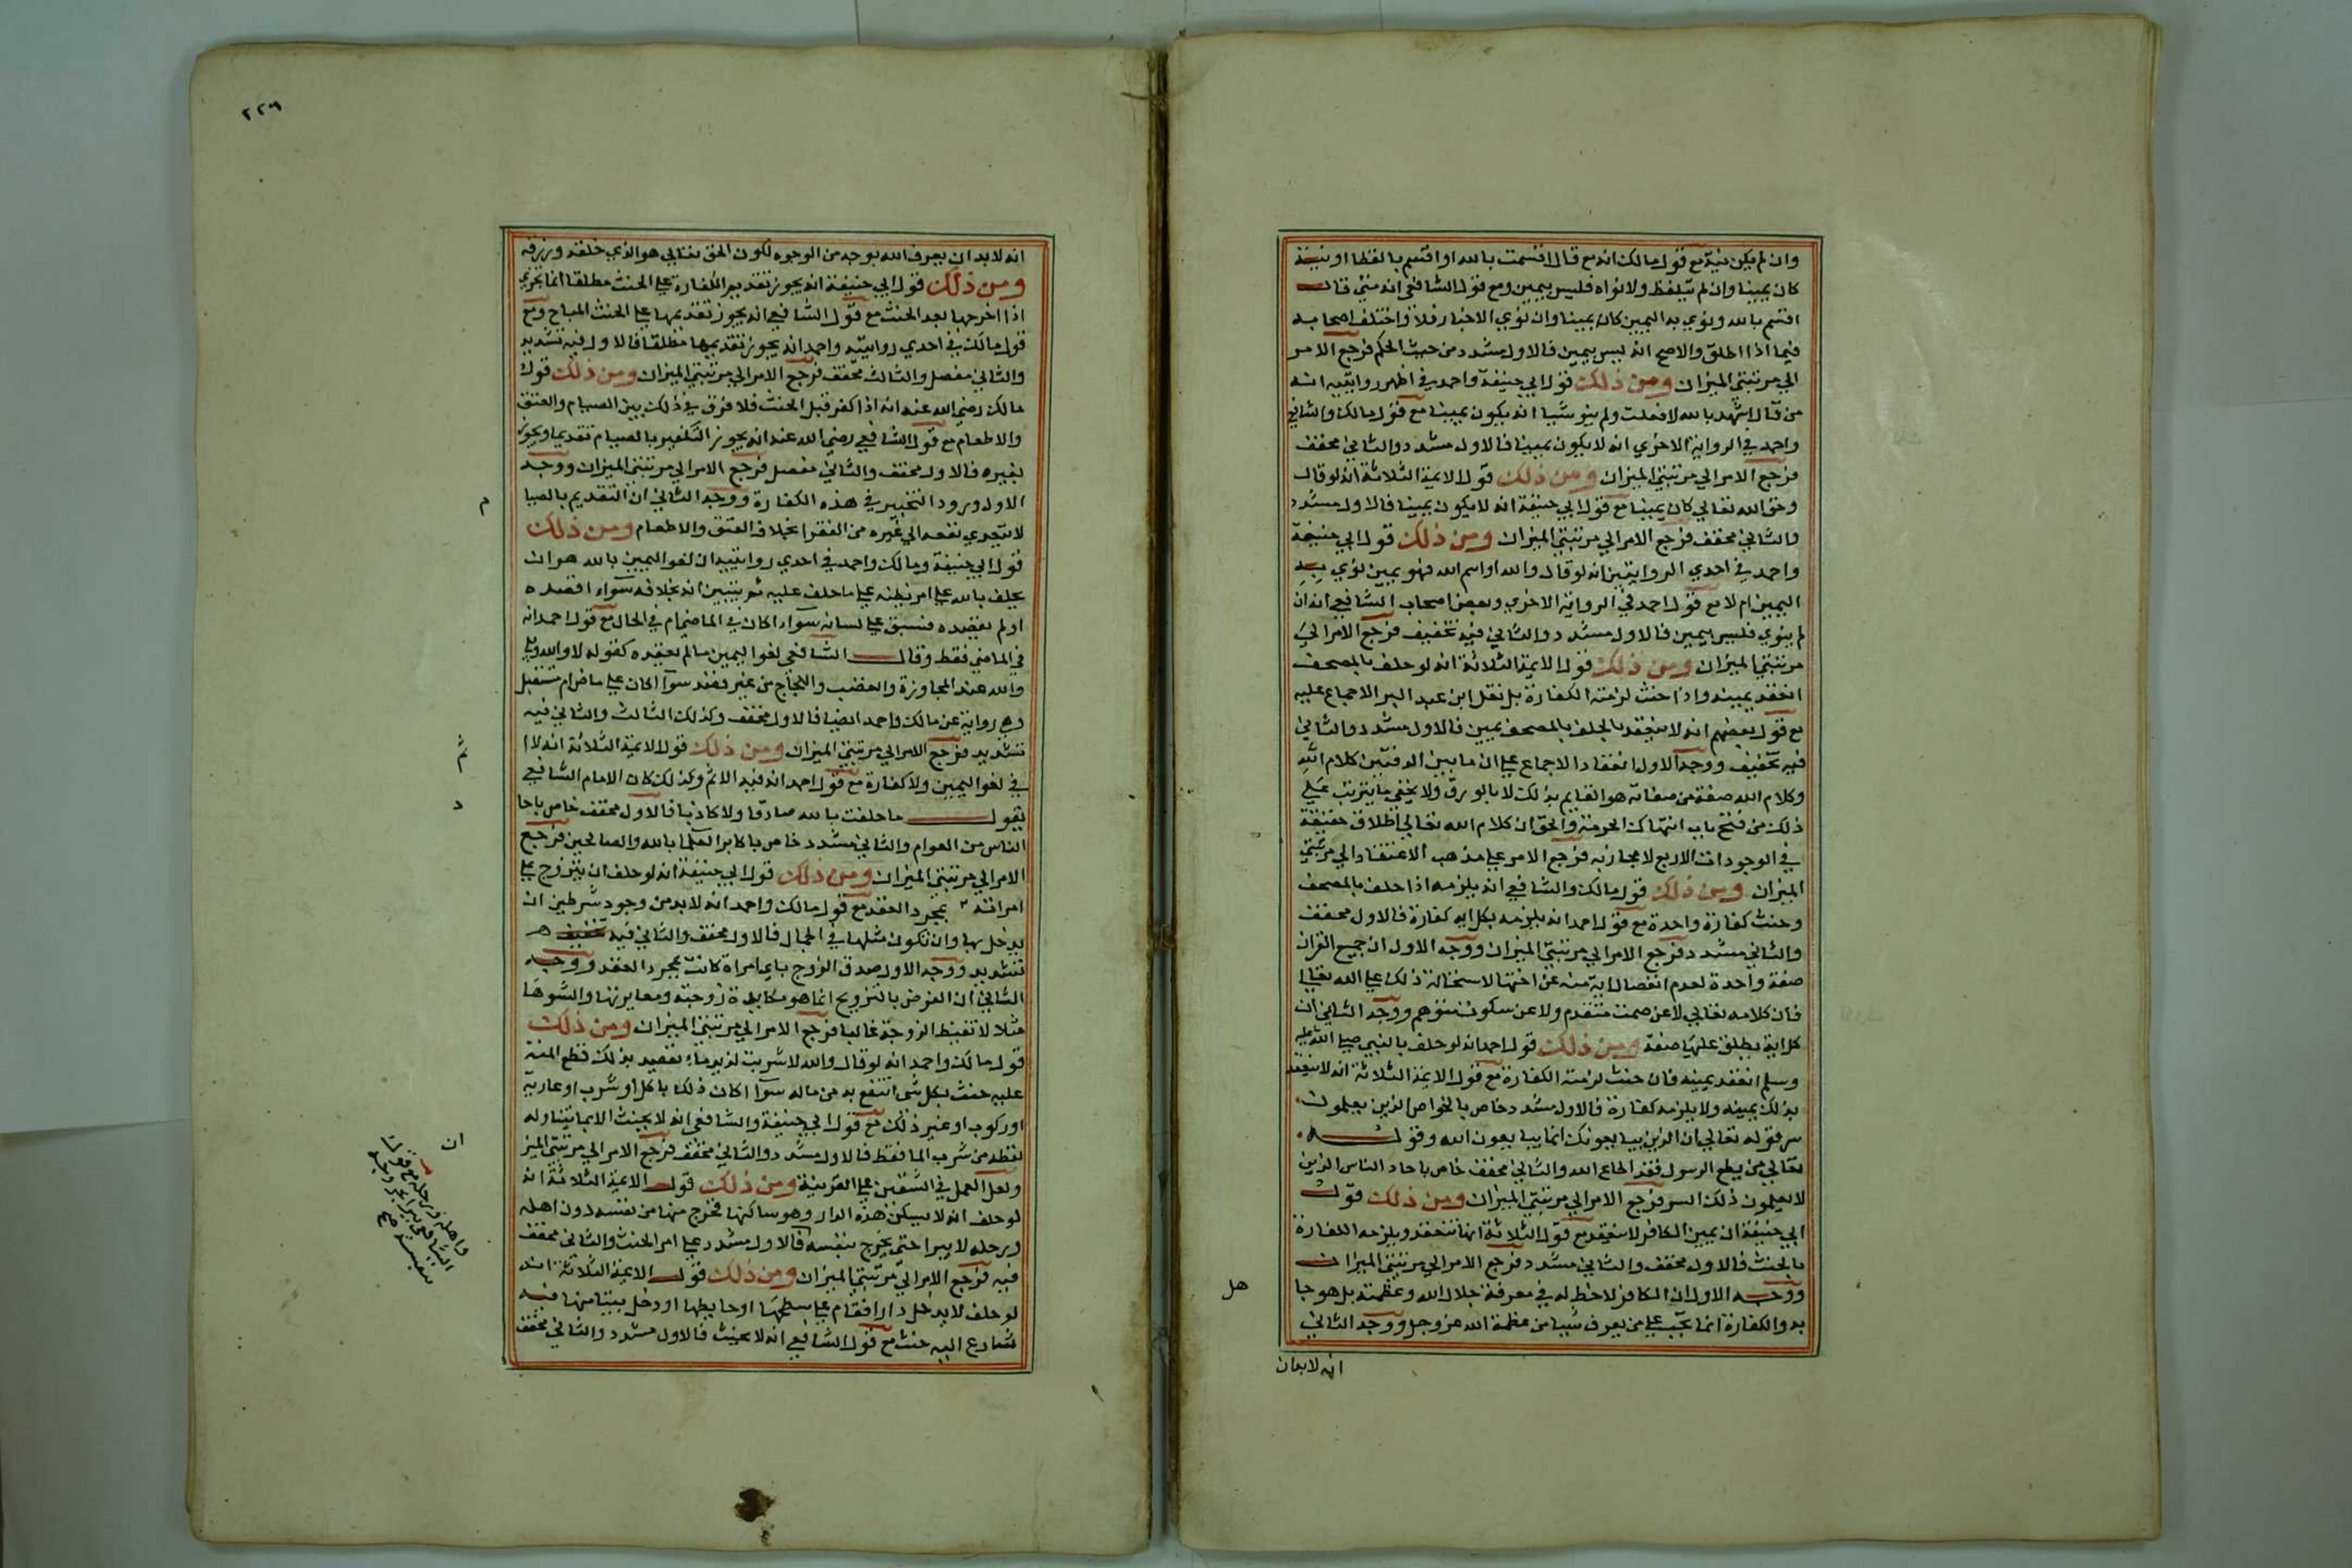 وان لم يكن نية مع قول مالك انه مع قال اقسمت بالله او اقسم بالفظا او بنية
كان يمينا وان لم يتلفظ ولا نواه فليس بيمين ومع قول الشافعي انه متي قال
اقسم بالله ونوي به اليمين كان يمينا وان نوي الاخبار فلا واختلف اصحابه
فيما اذا اطلق والاصح انه ليس بيمين فالاول مشدد من حيث الحكم فرجع الامر
الي مرتبتي الميزان ومن ذلك قول ابي حنيفة واحمد في اظهر روايتيه انه
من قال اشهد بالله لافعلت ولم ينو شيا انه يكون يمينا مع قول مالك والشافعي
واحمد في الرواية الاخري انه لا يكون يمينا فالاول مشدد والثاني مخفف
فرجع الامر الي مرتبتي الميزان ومن ذلك قول الايمة الثلاثة انه لو قال
وحق الله تعالي كان يمينا مع قول ابي حنيفة انه لا يكون يمينا فالاول مشدد
والثاني مخفف فرجع الامر الي مرتبتي الميزان ومن ذلك قول ابي حنيفة
واحمد في احدي الروايتين انه لو قال والله او اسم الله فهو يمين نوي به
اليمين ام لا مع قول احمد في الرواية الاخري وبعض اصحاب الشافعي انه ان
لم ينوي فليس بيمين فالاول مشدد والثاني فيه تخفيف فرجع الامر الي
مرتبتي الميزان ومن ذلك قول الايمة الثلاثة انه لو حلف بالمصحف
انعقد يمينه واذا حنث لزمته الكفارة بل نقل ابن عبد البر الاجماع عليه
مع قول بعضهم انه لا ينعقد بالحلف بالمصحف يمين فالاول مشدد والثاني
فيه تخفيف ووجه الاول انعقاد الاجماع علي ان ما بين الدفتين كلام الله
وكلام الله صفة من صفاته هو القايم بذلك لا بالورق ولا يخفي ما يترتب علي
ذلك من فتح باب انتهاك الحرمة والحق ان كلام الله تعالي اطلاق حقيقة
في الوجودات الاربع لا مجاز به فرجع الامر علي مذهب الاعتقاد الي مرتبتي
الميزان ومن ذلك قول مالك والشافعي انه يلزمه اذا حلف بالمصحف
وحنث كفارة واحدة مع قول احمد انه يلزمه بكل اية كفارة فالاول مخفف
والثاني مشدد فرجع الامر الي مرتبتي الميزان ووجه الاول ان جميع القران
صفة واحدة لعدم انفصال اية منه عن اختها لاستحالة ذلك علي الله تعالي
فان كلامه تعالي لا عن صمت متقدم ولا عن سكوت متوهم ووجه الثاني ان
كل اية يطلق عليها صفة ومن ذلك قول احمد انه لو حلف بالنبي صلي الله عليه
وسلم انعقد يمينه فان حنث لزمته الكفارة مع قول الايمة الثلاثة انه لا ينعقد
بذلك يمينه ولا يلزمه كفارة فالاول مشدد خاص بالخواص الذين يعلمون
سر قوله تعالي ان الذين يبايعونك انما يبايعون الله وقوله
تعالي من يطع الرسول فقد اطاع الله والثاني مخفف خاص باحاد الناس الذين
لا يعلمون ذلك السر فرجع الامر الي مرتبتي الميزان ومن ذلك قول
ابي حنيفة ان يمين الكافر لا ينعقد مع قول الثلاثة انها تنعقد ويلزمه الكفارة
بالحنث فالاول مخفف والثاني مشدد فرجع الامر الي مرتبتي الميزان
ووجه الاول ان الكافر لا حظ له في معرفة جلال الله وعظمته بل هو جا
به والكفارة انما يجب علي من يعرف شيا من عظمة الله عز وجل ووجه الثاني
انه لابدان
هل
٢٢٦
انه لا بد ان يعرف الله بوجه من الوجوه لكون الحق تعالي هو الذي خلقه ورزقه
ومن ذلك قول ابي حنيفة انه يجوز تقديم الكفارة علي الحنث مطلقا انما يجزي
اذا اخرجها بعد الحنث مع قول الشافعي انه يجوز تقديمها علي الحنث المباح ومع
قول مالك في احدي روايتيه واحمد انه يجوز تقديمها مطلقا فالاول فيه تشديد
والثاني مفصل والثالث مخفف فرجع الامر الي مرتبتي الميزان ومن ذلك قول
مالك رضي الله عنه انه اذا كفر قبل الحنث فلا فرق في ذلك بين الصيام والعتق
والاطعام مع قول الشافعي رضي الله عنه انه يجوز التكفير بالصيام تقديما ويجوز
بغيره فالاول مخفف والثاني مفصل فرجع الامر الي مرتبتي الميزان ووجه
الاول ورود التخيير في هذه الكفارة ووجه الثاني ان التقديم بالصيا
م
لا يتعدي نفعه الي غيره من الفقرا بخلاف العتق والاطعام ومن ذلك
قول ابي حنيفة ومالك واحمد في احدي روايتيه ان لغو اليمين بالله هو ان
يحلف بالله علي امر يظنه علي ما حلف عليه ثم يتبين انه بخلافه سواء اقصده
او لم يقصده فسبق علي لسانه سواء كان في الماضي ام في الحال مع قول احمد انه
في الماضي فقط وقال الشافعي لغو اليمين ما لم يعقده كقوله لا والله وبلي
والله عند المحاورة والغضب واللجاج من غير قصد سوا كان علي ماض ام مستقبل
وهي رواية عن مالك واحمد ايضا فالاول مخفف وكذلك الثالث والثاني فيه
تشديد فرجع الامر الي مرتبتي الميزان ومن ذلك قول الايمة الثلاثة انه لا ا
ثم
في لغو اليمين ولا كفارة مع قول احمد انه فيه الاثم وكذلك كان الامام الشافعي
يقول ما حلفت بالله صادقا ولا كاذبا فالاول مخفف خاص باحا
د
الناس من العوام والثاني مشدد خاص باكابر العلما بالله والصالحين فرجع
الامر الي مرتبتي الميزان ومن ذلك قول ابي حنيفة انه لو حلف ان يتزوج علي
امراته بمجرد العقد مع قول مالك واحمد انه لا بد من وجود شرطين ان
يدخل بها وان تكون مثلها في الجمال فالاول مخفف والثاني فيه
تشديد ووجه الاول صدق الزوج باي امراة كانت بمجرد العقد ووجه
الثاني ان الغرض بالتزويج انما هو مكايدة زوجته ومعايرتها والشوها
مثلا لا تغيظ الزوجة غالبا فرجع الامر الي مرتبتي الميزان ومن ذلك
قول مالك واحمد انه لو قال والله لا شربت لزيد ماء يقصد بذلك قطع المنة
عليه حنث بكل شي انتفع به من ماله سوا كان ذلك باكل او شرب او عارية
او ركوب او غير ذلك مع قول ابي حنيفة والشافعي انه لا يحنث الا بما يتناوله
لفظه من شرب الما فقط فالاول مشدد والثاني مخفف فرجع الامر الي مرتبتي الميز
ان
ولعل العمل في الشقين علي القرينة ومن ذلك قول الايمة الثلاثة انه
لو حلف انه لا يسكن هذه الدار وهو ساكنها فخرج منها من نفسه دون اهله
ورحله لا يبرا حتي يخرج بنفسه فالاول مشدد علي امر الحنث والثاني مخفف
واهله ورحله مع قول
الشافعي يبرا بخروجه
بنفسه صح
فيه فرجع الامر الي مرتبتي الميزان ومن ذلك قول الايمة الثلاثة انه
لو حلف لا يدخل دارا فقام علي سطحها او حايطها او دخل بيتا منها فيه
شارع اليه حنث مع قول الشافعي انه لا يحنث فالاول مشدد والثاني مخفف